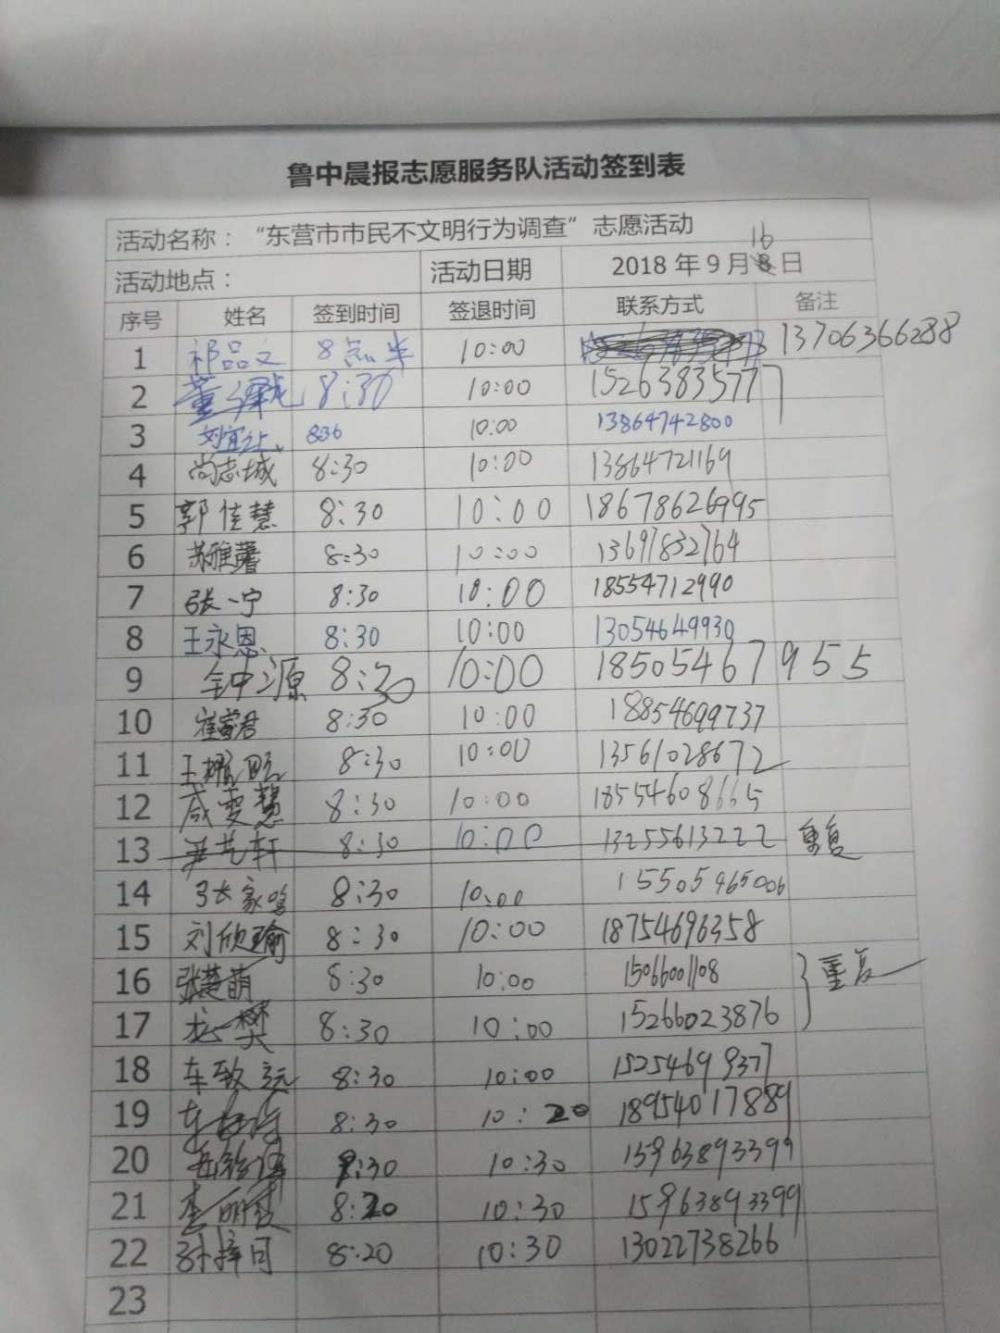 鲁中晨报志愿服务队活动签到表
活动名称：“东营市市民不文明行为调查”志愿活动
活动地点： 活动日期 2018年9月16日
序号 姓名 签到时间 签退时间 联系方式 备注
1 祁品文 8点半 10:00 13706366288
2 8:30 10:00 15263835777
3 刘宜让 8:30 10:00 13864742800
4 尚志城 8:30 10:00 13864721169
5 郭佳慧 8:30 10:00 18678626995
6 苏雅馨 8:30 10:00 13697832764
7 张一宁 8:30 10:00 18554712990
8 王永恩 8:30 10:00 13054649930
9 8:30 10:00 18505467955
10 8:30 10:00 18854699737
11 8:30 10:00 13561028672
12 8:30 10:00 18554608665
13 尹艺轩 8:30 10:00 13255613222 重复
14 张家鸣 8:30 10:00 15505465006
15 刘欣瑜 8:30 10:00 18754696358
16 张楚萌 8:30 10:00 15066001108 重复
17 8:30 10:00 15266023876
18 车致远 8:30 10:00 15254699377
19 8:30 10:20 18954017889
20 8:30 10:30 15963893399
21 8:20 10:30 15963893399
22 8:20 10:30 13022738266
23